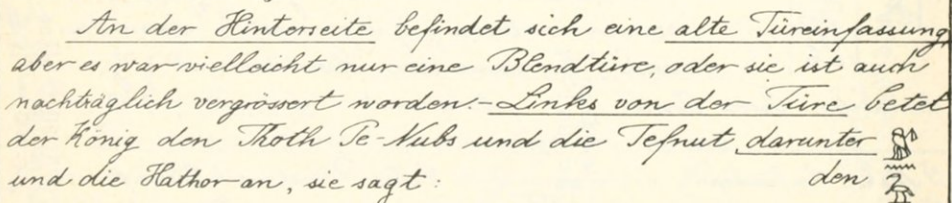 An der Hinterseite befindet sich eine alte Türeinfassung
aber es war vielleicht nur eine Blendtüre, oder sie ist auch
nachträglich vergrössert worden.- Links von der Türe betet
der König den Thoth Pe-Nubs und die Tefnut, darunter
und die Hathor an, sie sagt: den